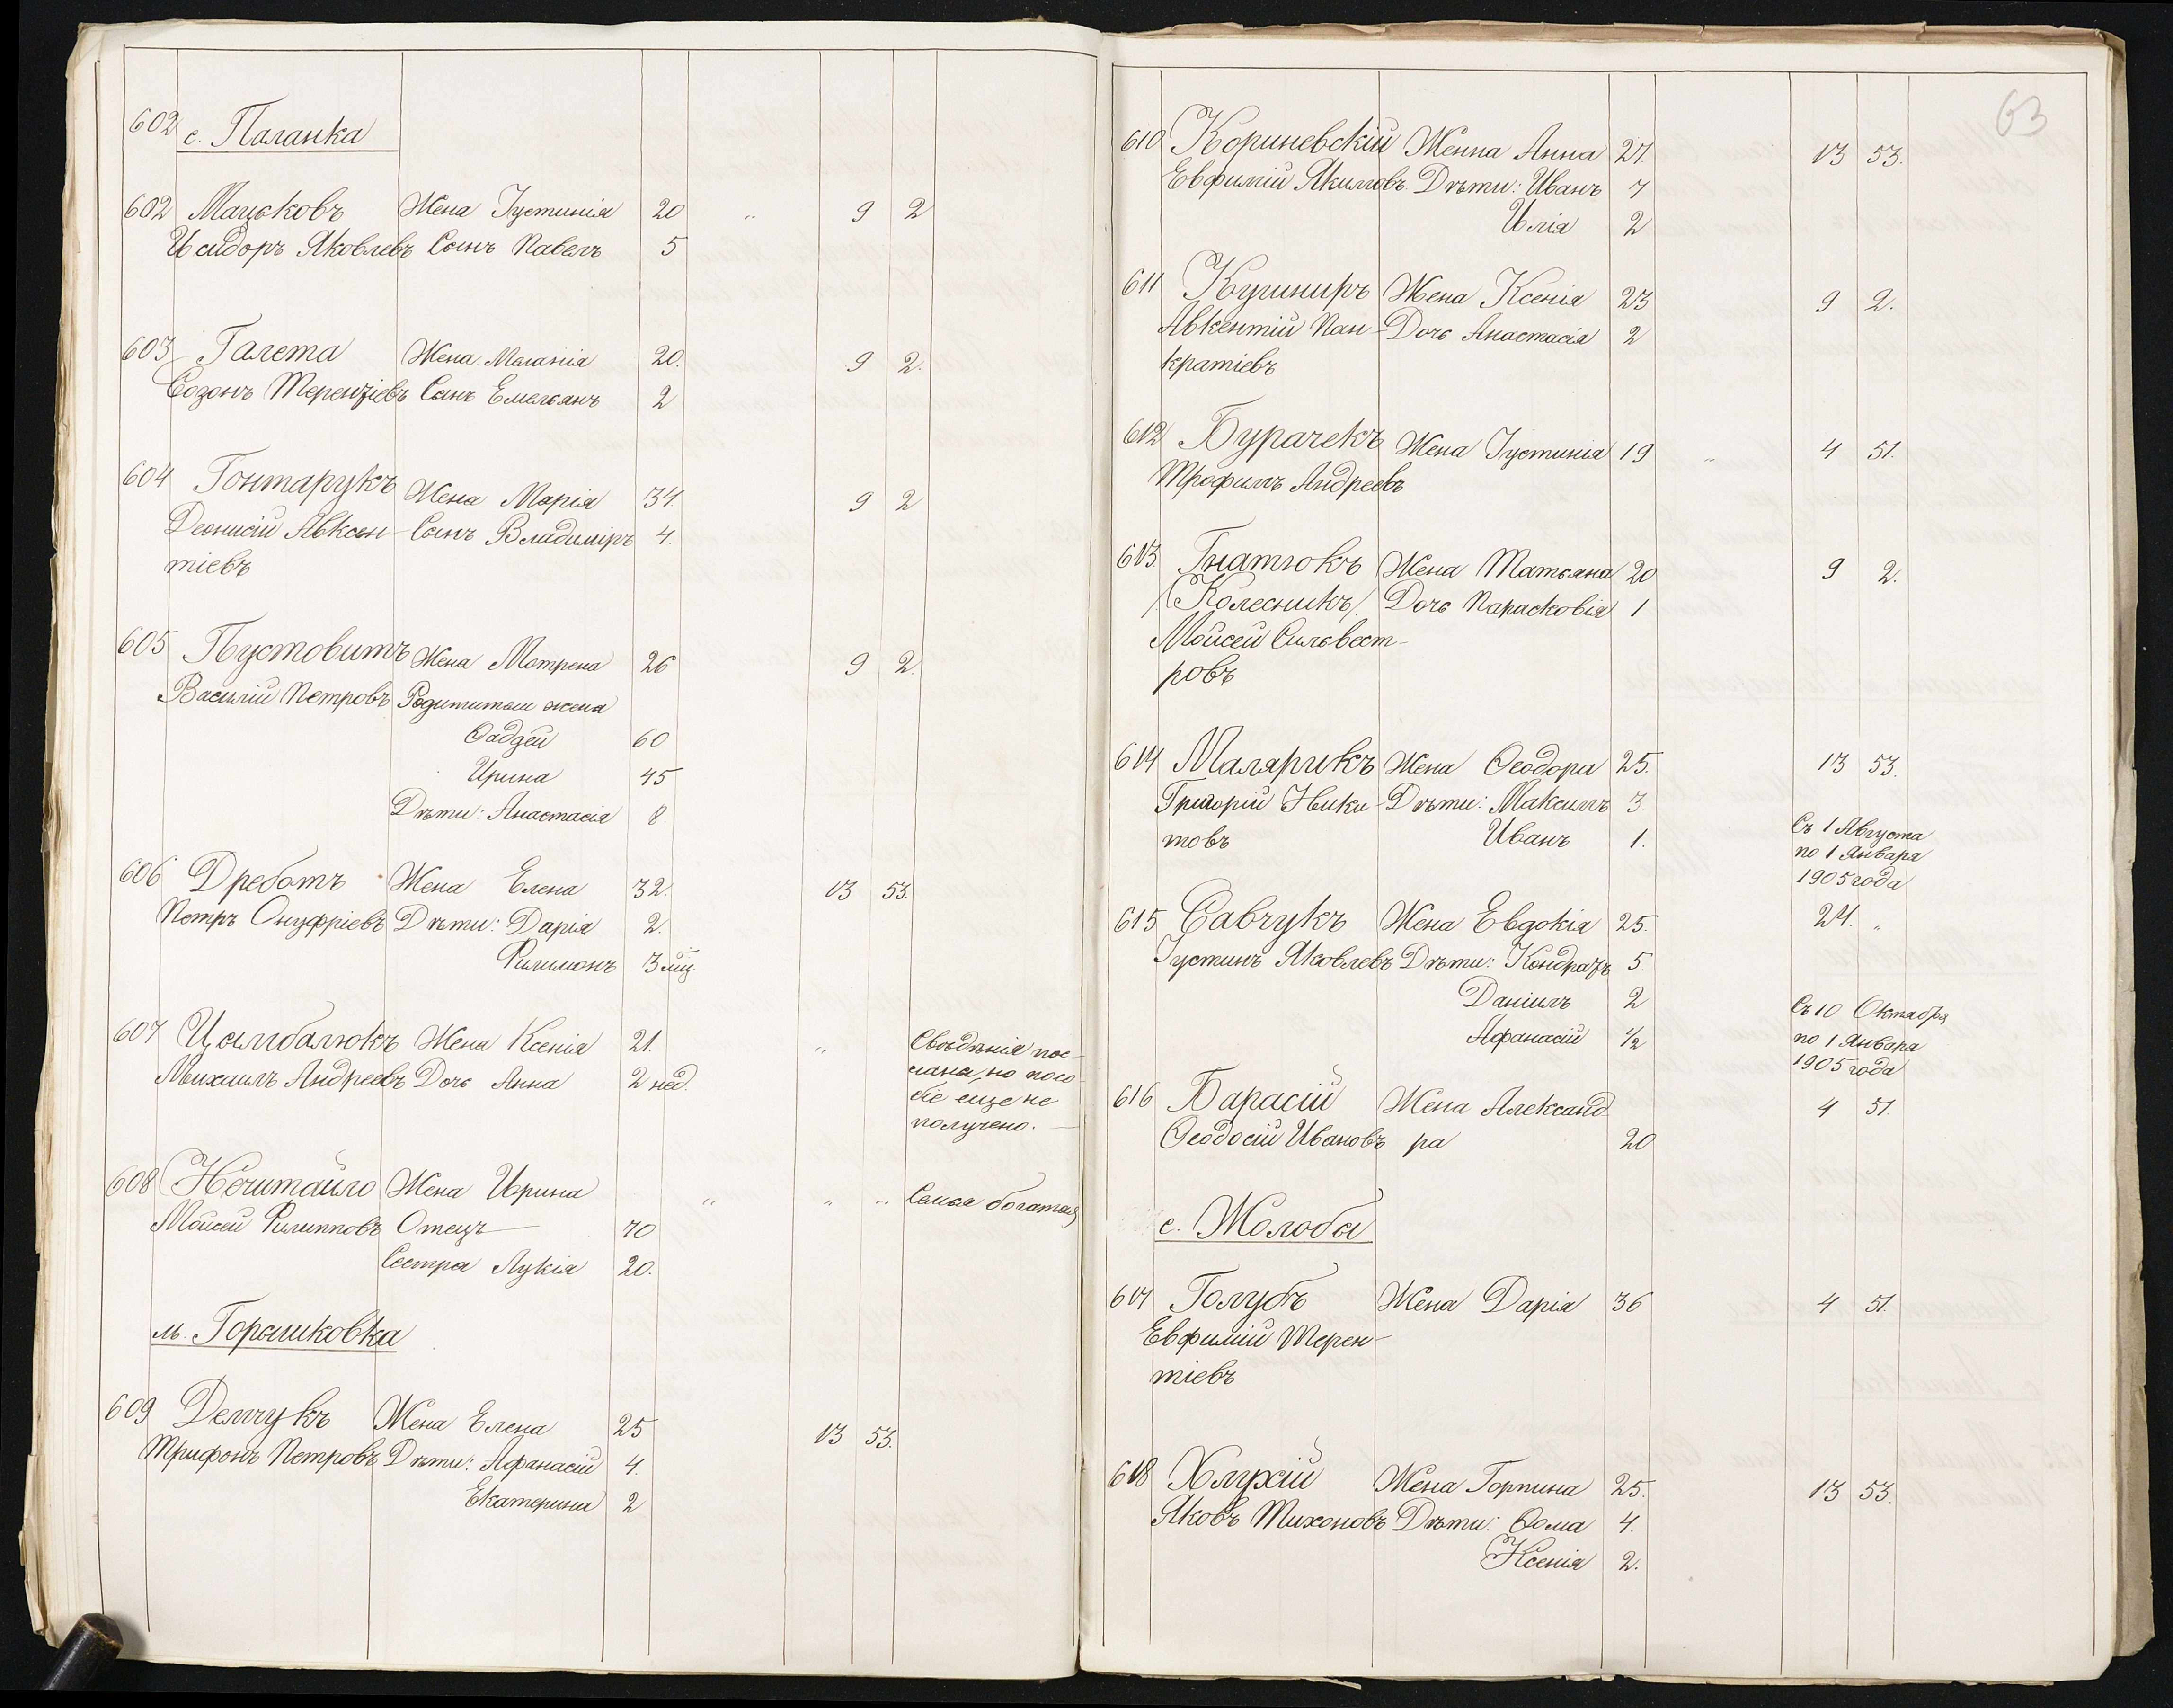 602 с. Паланка
602 Мацьковъ Жена Іустинія 20 " 9 2
Исидоръ Яковлевъ Сынъ Павелъ 5
603 Галета Жена Меланія 20. 9 2.
Созонъ Терентіевъ Сынъ Емельянъ 2
604 Гонтарукъ Жена Марія 34. 9 2
Деонисій Авксен- Сынъ Владиміръ 4.
тіевъ
605 Пустовитъ Жена Мотрена 26 9 2.
Василій Петровъ Родители жена
Ѳаддей 60
Ирина 45
Дѣти: Анастасія 8
606 Дреботъ Жена Елена 32. 13 53.
Петръ Онуфріевъ Дѣти: Дарія 2.
Филимонъ 3 мѣ.
607 Цымбалюкъ Жена Ксенія 21. " Свѣдѣнія пос-
Михаилъ Андреевъ Дочь Анна 2 нед. лана, но посо-
біе еще не
получено.
608 Нечитайло Жена Ирина " " " Семья богатая
Мойсей Филипповъ Отецъ 70
Сестра Лукія 20.
м. Горышковка
609 Демчукъ Жена Елена 25 13 53.
Трифонъ Петровъ Дѣти: Афанасій 4.
Екатерина 2
63
610 Кориневскій Женна Анна 27. 13 53.
Евфимій Якимовъ. Дѣти: Иванъ 7
Илія 2
611 Кушниръ Жена Ксенія 23 9 2.
Авкентій Пан- Дочь Анастасія 2
кратіевъ
612 Бурачекъ Жена Іустинія 19 " 4 51.
Трофимъ Андреевъ
613 Гнатюкъ Жена Татьяна 20 9 2.
/Колесникъ/. Дочь Парасковія 1
Мойсей Сильвест-
ровъ
614 Маларикъ Жена Ѳеодора 25. 13 53.
Григорій Ники- Дѣти: Максимъ 3.
товъ Иванъ 1.
Съ 1 Августа
по 1 Января
1905 года
615 Савчукъ Жена Евдокія 25. 24. "
Іустинъ Яковлевъ Дѣти: Кондратъ 5.
Даніилъ 2
Афанасій 1/2
Съ 10 Октября
по 1 Января
1905 года
616 Барасій Жена Александ 4 51.
Ѳеодосій Ивановъ ра 20
с. Жолобы
617 Голубъ Жена Дарія 36 4 51.
Евфимій Терен-
тіевъ
618 Хлухій Жена Горпина 25. 13 53.
Яковъ Тихоновъ Дѣти: Ѳома 4.
Ксенія 2.